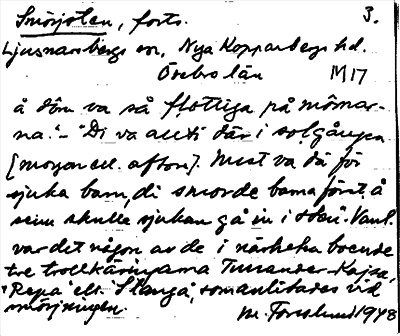 Smörjolen, forts. 3.
Ljusnarsbergs sn, Nya Kopparbergs hd.
Örebro län M17
å dôm va så flottiga på mômar-
na." - "Di va allti där i solgången
[morgon ell. afton]. Mest va dä för
sjuka barn, di smorde barna först å
senn skulle sjukan gå in i sten". Vanl.
var det någon av de i närheten boende
tre trollkäringarna Tussander-Kajsa,
"Repa" ell. "Slånga", som anlitades vid
smörjningen. M. Forslund 1948